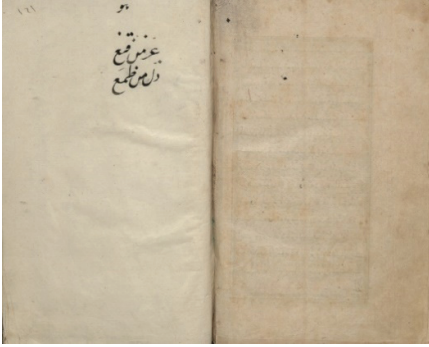 هو
عز من قنع
ذل من طمع